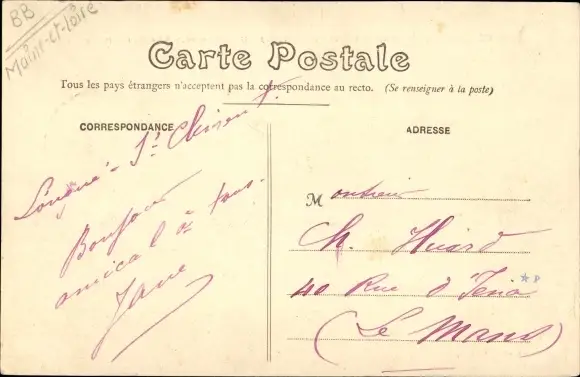 BB
Maine-et-Loire
Carte Postale
Tous les pays étrangers n'acceptent pas la correspondance au recto. (Se renseigner à la poste)
CORRESPONDANCE
St Clément
Bonjour
amical à tous.
Jane
ADRESSE
Monsieur
Ch. Huard
40 Rue d'Iéna
(Le Mans)